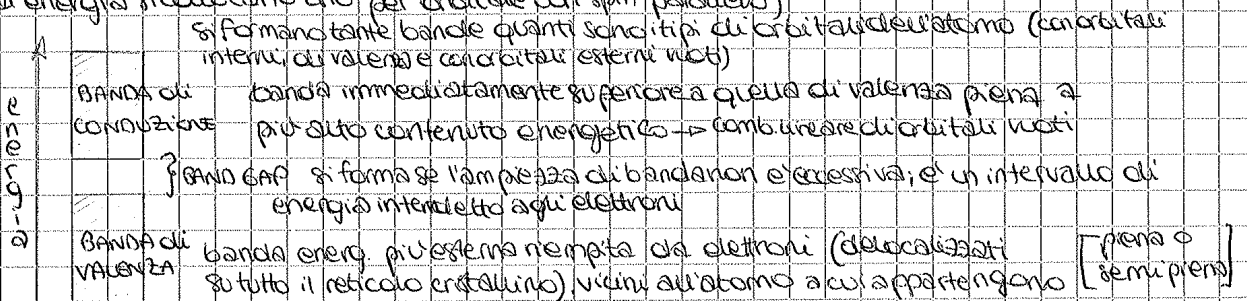 di energia si collocano uno per orbitale con spin parallelo)
si formano tante bande quanti sono i tipi di orbitali dell'atomo (con orbitali
interni, di valenza e con orbitali esterni vuoti)
BANDA di CONDUZIONE banda immediatamente superiore a quella di valenza piena a
più alto contenuto energetico → comb. lineare di orbitali vuoti
} BAND GAP si forma se l'ampiezza di banda non e' eccessiva; e' un intervallo di
energia interdetto agli elettroni
energia
BANDA di VALENZA banda energ. piu' esterna riempita da elettroni (delocalizzati
su tutto il reticolo cristallino), vicini all'atomo a cui appartengono [piena o
semipiena]